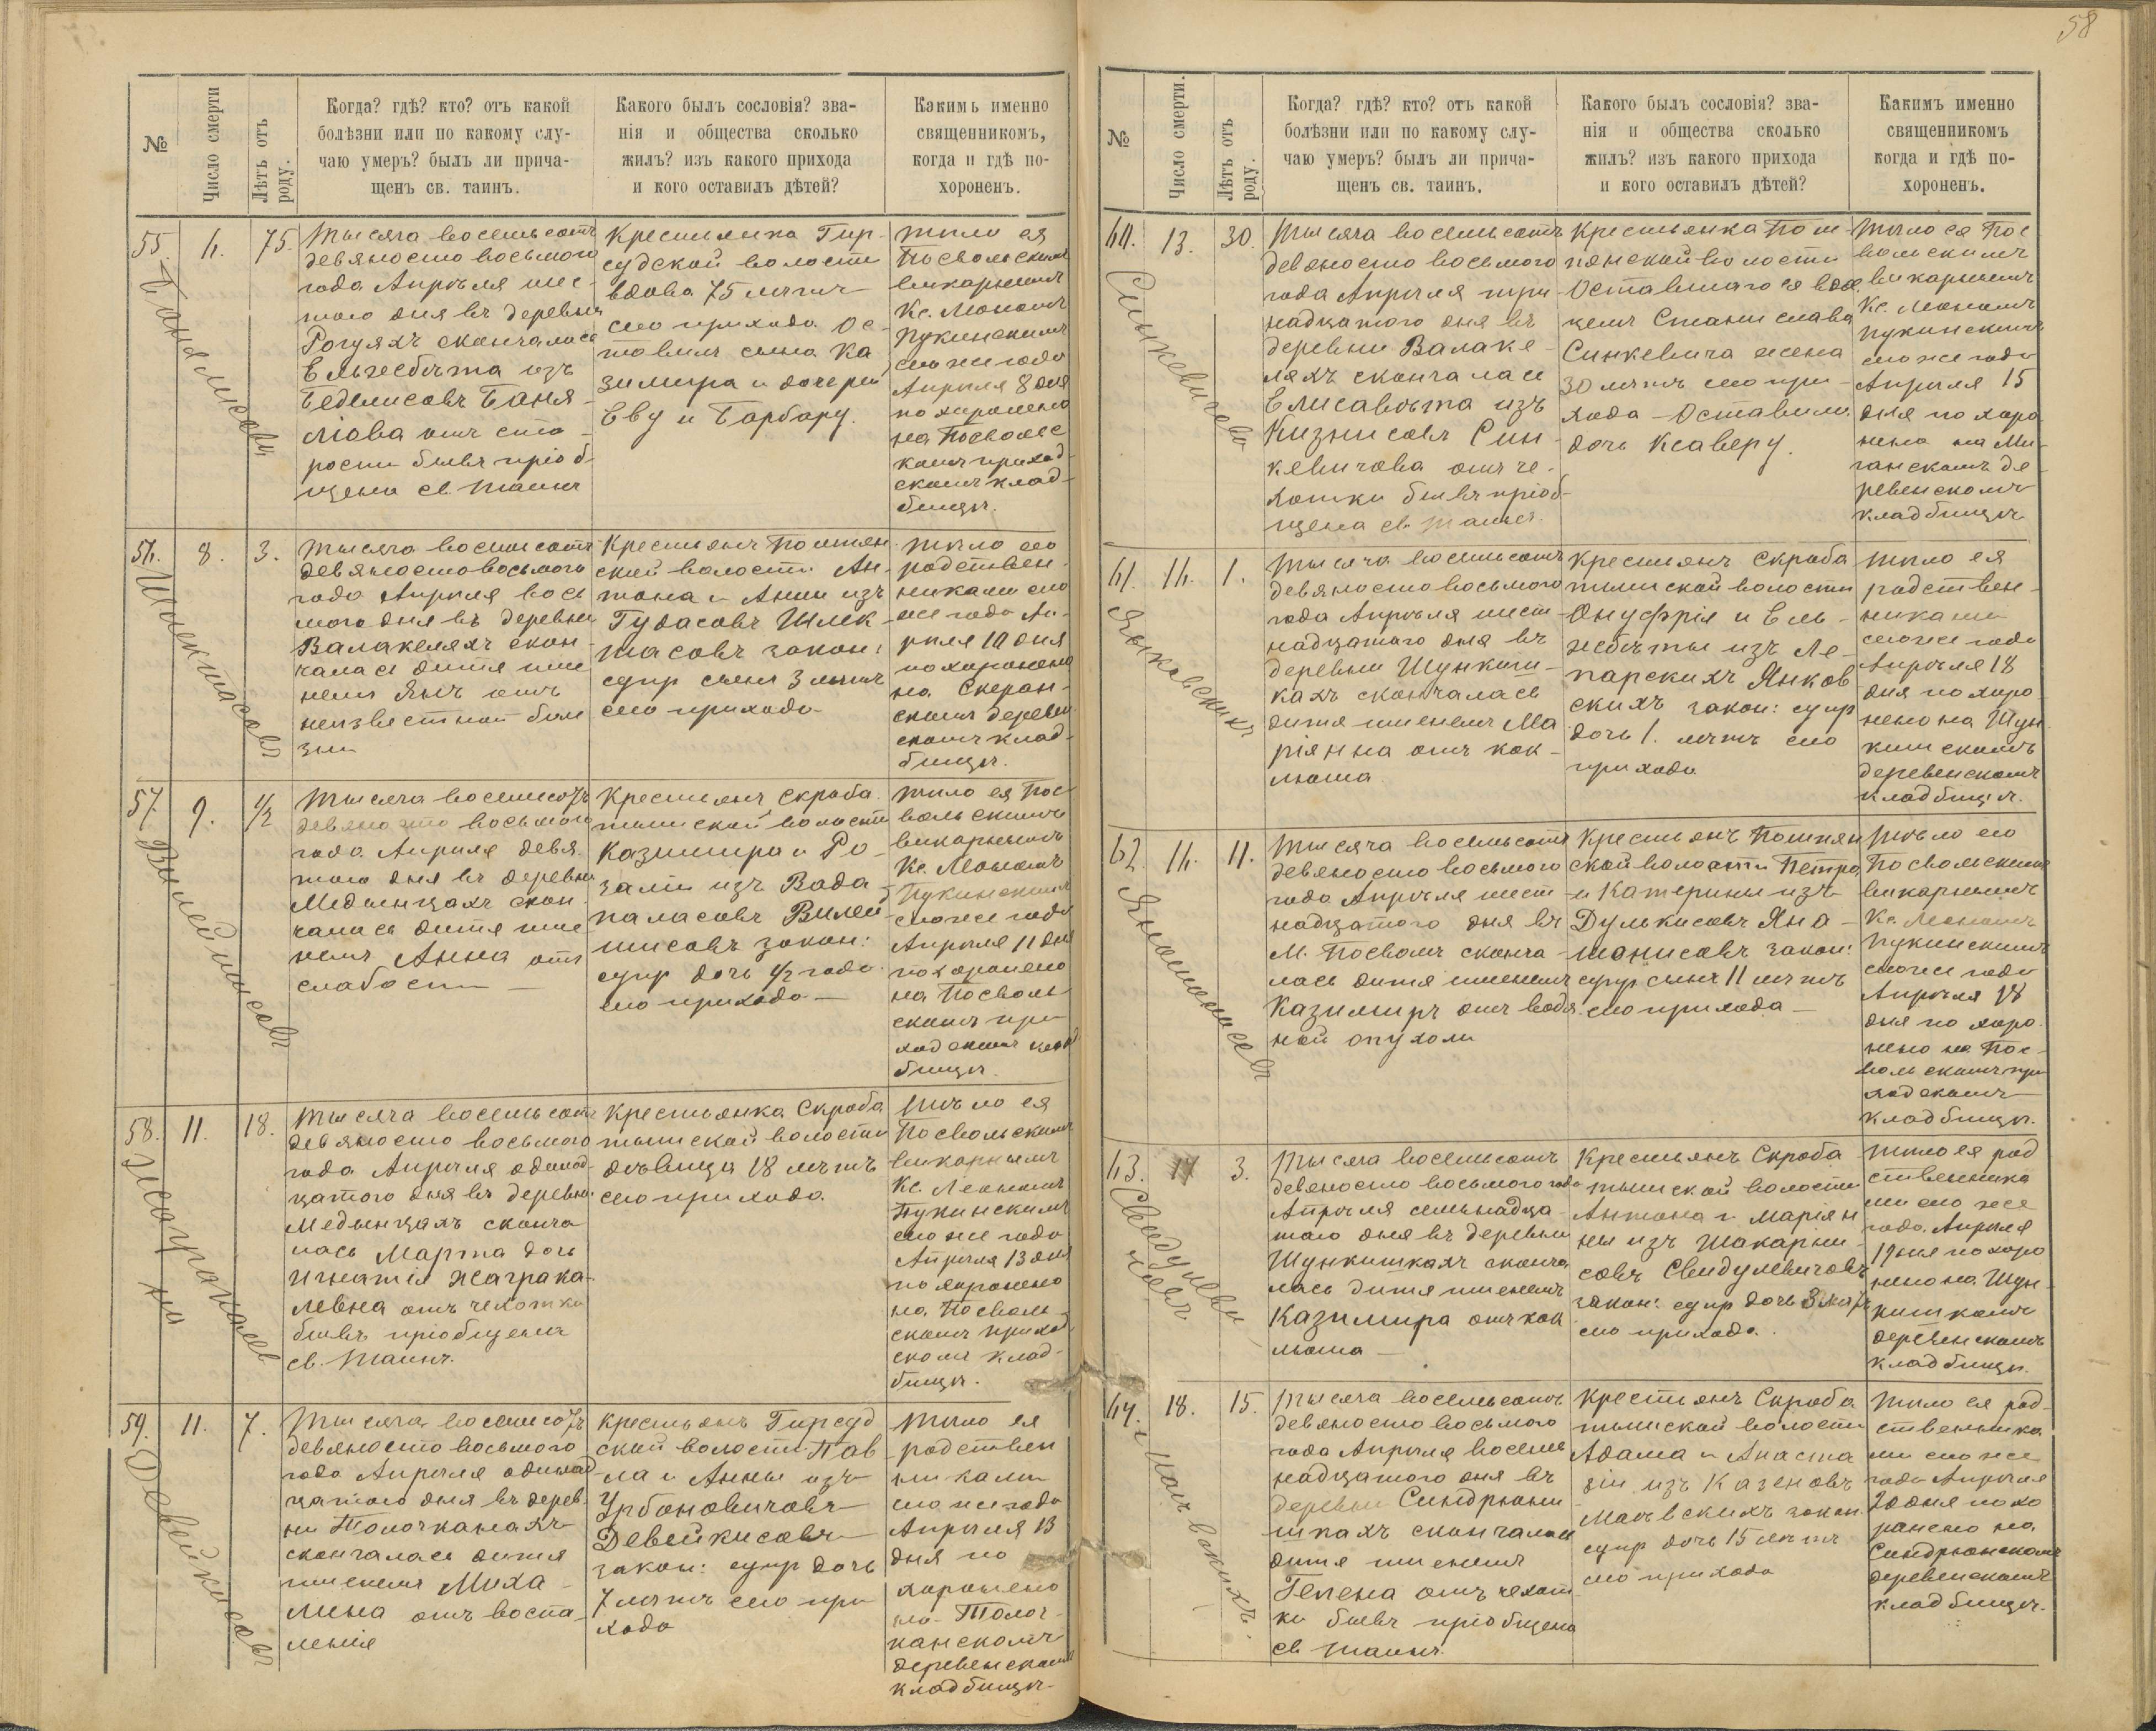 58
№
Число смерти
Лѣтъ отъ роду.
Когда? гдѣ? кто? отъ какой
болѣзни или по какому слу-
чаю умеръ? былъ ли прича-
щенъ св. таинъ.
Какого былъ сословія? зва-
нія и общества сколько
жилъ? изъ какого прихода
и кого оставилъ дѣтей?
Какимъ именно
священникомъ,
когда и гдѣ по-
хороненъ.
55.
6.
75.
Тысяча восемьсотъ
девяносто восьмого
года Апрѣля шес-
того дня въ деревнѣ
Рогуяхъ скончалась
Ельжебѣта изъ
отъ ста-
рости бывъ пріоб-
щена св. Таинъ
Крестьянка Гир-
судской волости
вдова 75 лѣтъ
сего прихода Ос-
тавилъ сына Ка
зимира и дочерей
Еву и Барбару.
тѣло ея
Посвольскимъ
викарнымъ
Кс. Леономъ
Пукинскимъ
сего же года
Апрѣля 8 дня
похоронено
на Посволь
скомъ приход-
скомъ клад-
бищѣ.
56.
8.
3.
Тысяча восемьсотъ
девяносто восьмого
года Апрѣля вось
мого дня въ деревнѣ
Валакеляхъ скон-
чалась дитя име
немъ Янъ отъ
неизвестной болѣ
зни
Крестьянъ Помпян
ской волости Ан-
тона и Анны изъ
Гудасовъ Шлек-
тасовъ закон:
супр сынъ 3 лѣтъ
сего прихода
тѣло его
родствен-
никами сего
же года Ап-
рѣля 10 дня
похоронено
на
скомъ деревен
скомъ клад-
бищѣ.
57.
9.
1/2
Тысяча восемьсотъ
девяносто восьмого
года Апрѣля девя
того дня въ деревнѣ
Медынцахъ скон
чалась дитя име
немъ Анна отъ
слабости —
Крестьянъ Скроба
тышской волости
Казимира и Ро-
заліи изъ Вада-
паласовъ Вилей-
шисовъ закон:
супр дочь 1/2 года
сего прихода —
тѣло ея Пос-
вольскимъ
викарнымъ
Кс. Леономъ
Пукинскимъ
сего же года
Апрѣля 11 дня
похоронено
на Посволь-
скомъ при
ходскомъ клад
бищѣ.
58.
11.
18.
Тысяча восемьсотъ
девяносто восьмого
года Апрѣля одинад-
цатого дня въ деревнѣ
Медынцахъ сконча
лась Марта дочь
Игнатія Жаграка-
левна отъ чехотки
бывъ пріобщенъ
св. Таинъ.
Крестьянка Скроба
тышской волости
дѣвица 18 лѣтъ
сего прихода.
тѣло ея
Посвольскимъ
викарнымъ
Кс. Леономъ
Пукинскимъ
сего же года
Апрѣля 13 дня
похоронено
на Посволь-
скомъ приход
скомъ клад-
бищѣ.
59.
11.
7.
Тысяча восемьсотъ
девяносто восьмого
года Апрѣля одинад
цатого дня въ дерев
ни Толочканахъ
скончалась дитя
именемъ Миха-
лина отъ воспа-
ленія
Крестьянъ Гирсуд
ской волости Пав
ла и Анны изъ
Урбоновичовъ
Девейкисовъ
закон: супр дочь
7 лѣтъ сего при
хода
Тѣло ея
родствен
никами
сего же года
Апрѣля 13
дня по
хоронено
на Толоч-
канскомъ
деревенскомъ
кладбищѣ
№
Число смерти.
Лѣтъ отъ роду.
Когда? гдѣ? кто? отъ какой
болѣзни или по какому слу-
чаю умеръ? былъ ли прича-
щенъ св. таинъ.
Какого былъ сословія? зва-
нія и общества сколько
жилъ? изъ какого прихода
и кого оставилъ дѣтей?
Какимъ именно
священникомъ
когда и гдѣ по-
хороненъ.
60.
13.
30.
Тысяча восемьсотъ
девяносто восьмого
года Апрѣля три
надцатого дня въ
деревни Валаке-
ляхъ скончалась
Елисавѣта изъ
Син-
кевичова отъ че-
хотки бывъ пріоб-
щена св. Таинъ.
Крестьянка Пом-
пянской волости
Оставшагося вдов
цемъ Станислава
Синкевича жена
30 лѣтъ сего при-
хода — Оставила
дочь Ксаверу.
Тѣло ея Пос
вольскимъ
викарнымъ
Кс. Леономъ
Пукинскимъ
сего же года
Апрѣля 15
дня похоро
нено на Ми-
ганскомъ де
ревенскомъ
кладбищѣ
61.
16.
1.
Тысяча восемьсотъ
девяносто восьмого
года Апрѣля шест
надцатого дня въ
деревни Шункиш-
кахъ скончалась
дитя именемъ Ма
ріянна отъ кок-
люша.
Крестьянъ Скроба
тышской волости
Онуфрія и Ель-
жебѣты изъ Ле-
парскихъ Янков
скихъ закон: супр
дочь 1. лѣтъ сего
прихода
тѣло ея
родствен-
никами
сего же года
Апрѣля 18
дня похоро
нено на Шун
кишскомъ
деревенскомъ
кладбищѣ.
62.
16.
11.
Тысяча восемьсотъ
девяносто восьмого
года Апрѣля шест
надцатого дня въ
М. Посволѣ сконча-
лась дитя именемъ
Казимиръ отъ водя
ной опухоли
Крестьянъ Помпян
ской волости Петра
и Катерины изъ
Дулькисовъ Яна-
шанисовъ закон:
супр сынъ 11 лѣтъ
сего прихода —
Тѣло его
Посвольскимъ
викарнымъ
Кс. Леономъ
Пукинскимъ
сего же года
Апрѣля 18
дня похоро
нено на Пос-
вольскомъ при
ходскомъ
кладбищѣ.
63.
17
3.
Тысяча восемьсотъ
девяносто восьмого года
Апрѣля семьнадца-
того дня въ деревни
Шункишкахъ сконча
лась дитя именемъ
Казимира отъ кок
люша —
Крестьянъ Скроба
тышской волости
Антона и Маріян
ны изъ Шакарни-
совъ Свидулевичовъ
закон: супр дочь 3 лѣтъ
сего прихода.
тѣло ея род
ственника
ми сего же
года Апрѣля
19 дня похоро
нено на Шун-
кишкомъ
деревенскомъ
кладбищѣ.
64.
18.
15.
Тысяча восемьсотъ
девяносто восьмого
года Апрѣля восем
надцатого дня въ
деревни Синдрюни
шкахъ скончалась
дитя именемъ
Гепена отъ чехот
ки бывъ пріобщена
св Таинъ.
Крестьянъ Скроба
тышской волости
Адама и Анаста
зіи изъ Казеновъ
Маевскихъ закон
супр дочь 15 лѣтъ
сего прихода
тѣло ея род-
ственника
ми сего же
года Апрѣля
20 дня похо
ронено на
Синдрюнскомъ
деревенскомъ
кладбищѣ.